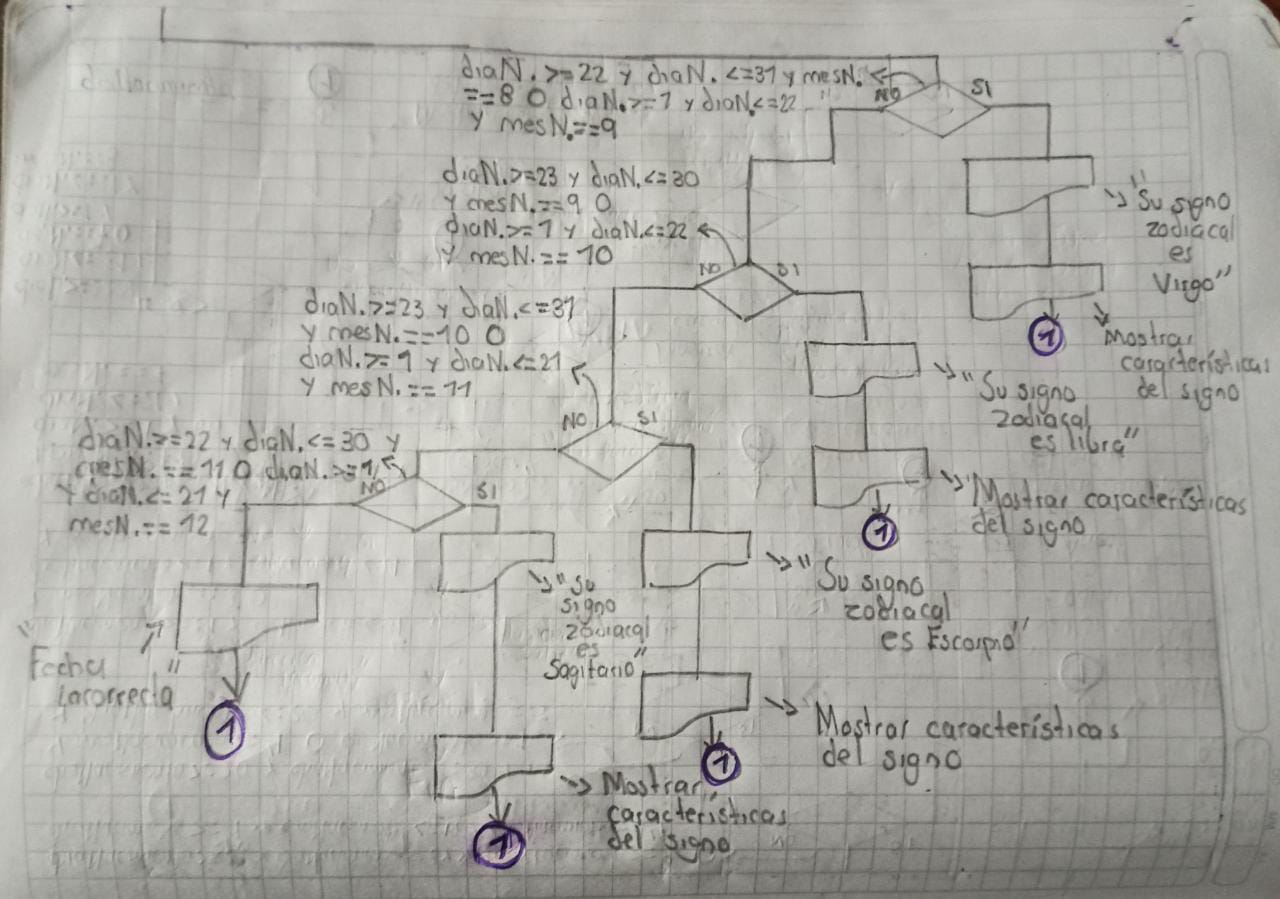 diaN. >=22 y diaN. <=31 y mesN.
==8 O diaN.>=1 y diaN.<=22
y mesN.==9
NO
SI
"Su signo
zodiacal
es
Virgo"
Mostrar
características
del signo
1
diaN.>=23 y diaN.<=30
y mesN.==9 O
diaN.>=1 y diaN.<=22
y mesN.== 10
NO
SI
"Su signo
zodiacal
es libra"
Mostrar características
del signo
1
diaN.>=23 y diaN.<=31
y mesN.==10 O
diaN.>=1 y diaN.<=21
y mesN.== 11
NO
SI
"Su signo
zodiacal
es Escorpio"
Mostrar características
del signo
1
diaN.>=22 y diaN.<=30 y
mesN.==11 O diaN.>=1
y diaN.<=21 y
mesN.== 12
NO
SI
"Su
signo
zodiacal
es
Sagitario"
Mostrar
características
del signo
1
"Fecha
incorrecta"
1